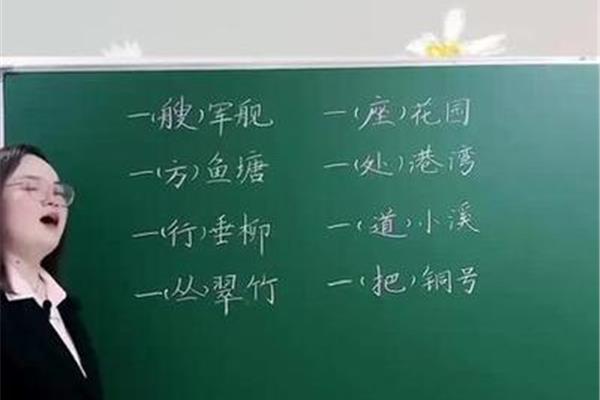 一(艘)军舰 一(座)花园
一(方)鱼塘 一(处)港湾
一(行)垂柳 一(道)小溪
一(丛)翠竹 一(把)铜号